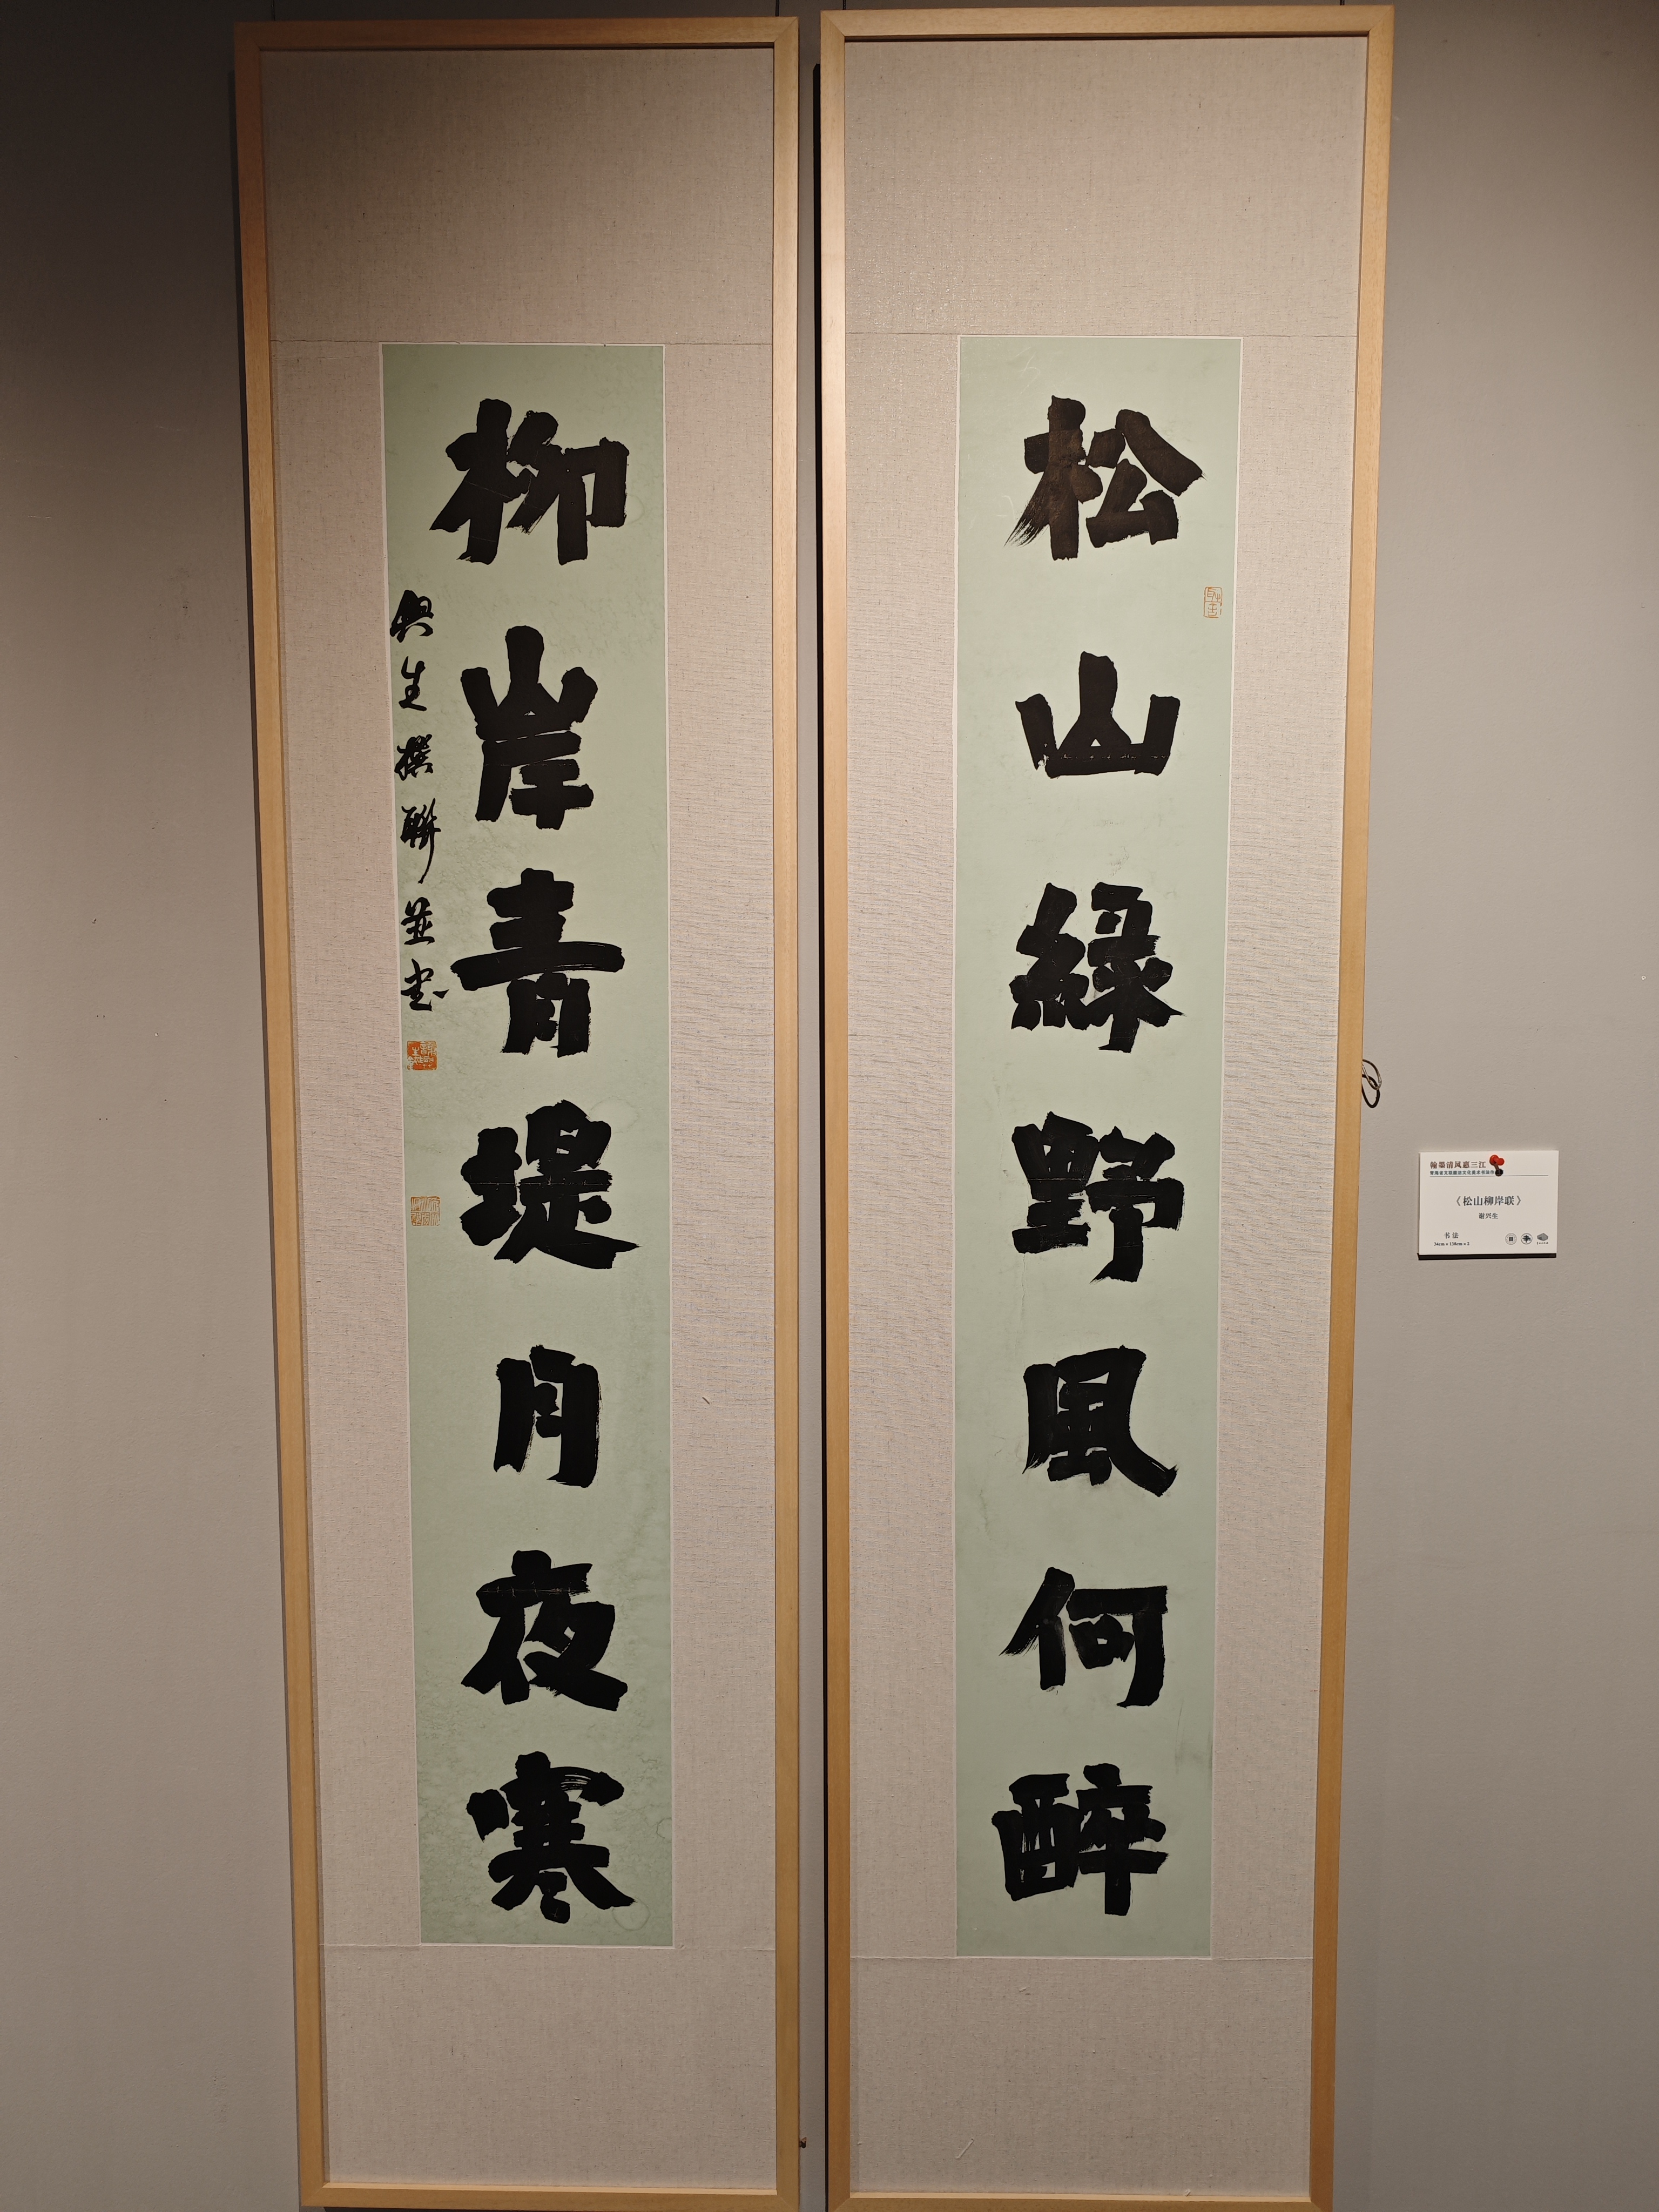 松山緑野風何醉
柳岸青堤月夜寒
興生撰聯並書
翰墨清风惠三江
《松山柳岸联》
谢兴生
书法
34cm×138cm×2